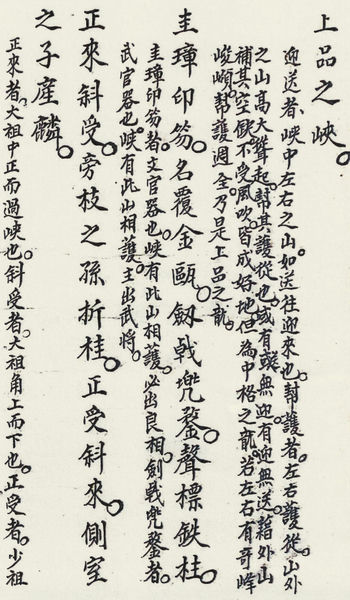 上品之峽。
迎送者、峽中左右之山。如送往迎來也。幫護者。左右護從。山外
之山高大聳起。幫其護從也。或有無迎。有迎無送。藉外山
補其空缺。不受風吹。皆成好地。但為中格之龍。若左右有奇峰
峻嶺。幫護週全。乃是上品之龍。
圭璋印笏。名覆金甌。劍戟兜鍪。聲標鉄柱。
圭璋印笏者。文官器也。峽有此山相護。必出良相。劍戟兜鍪者。
武官器也。峽有此山相護。主出武將。
正來斜受。旁枝之孫折桂。正受斜來。側室
之子産麟。
正來者。大祖中正而過峽也。斜受者。大祖角上而下也。正受者。少祖